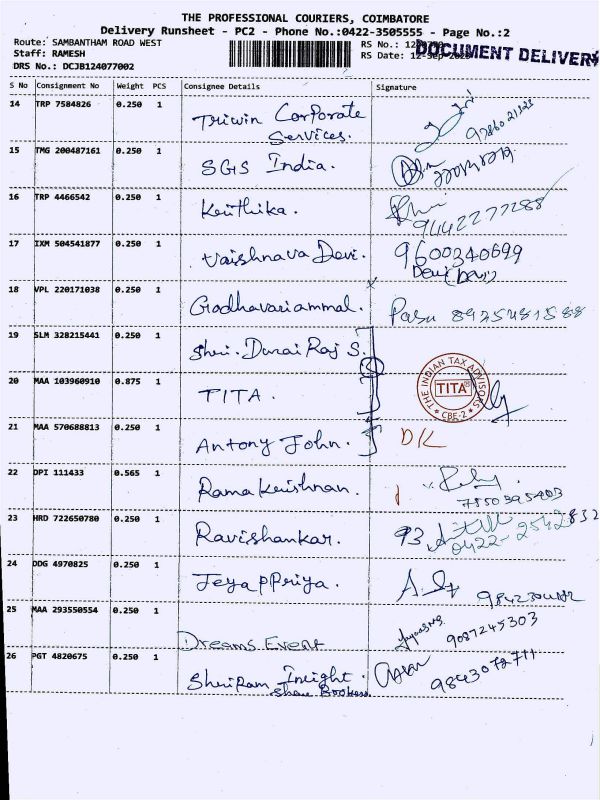 THE PROFESSIONAL COURIERS, COIMBATORE
Delivery Runsheet - PC2 - Phone No.:0422-3505555 - Page No.:2
Route: SAMBANTHAM ROAD WEST RS No.:
DOCUMENT DELIVERY
Staff: RAMESH RS Date: 12-Sep-
DRS No.: DCJB124077002
S No Consignment No Weight PCS Consignee Details Signature
14 TRP 7584826 0.250 1 Triwin Corporate
Services.
15 TMG 200487161 0.250 1 SGS India.
16 TRP 4466542 0.250 1 Keithika. 9442277288
17 IXM 504541877 0.250 1 Vaishnava Devi. 9600340699
Devi (Devi)
18 VPL 220171038 0.250 1 Godhavariammal. Pasu
19 SLM 328215441 0.250 1 Shri. Durai Raj S.
20 MAA 103960910 0.875 1 TITA.
THE INDIAN TAX ADVISORS
TITA
CBE-2
21 MAA 570688813 0.250 1 Antony John. D/L
22 DPI 111433 0.565 1 Rama Krishnan. 7550395403
23 HRD 722650780 0.250 1 Ravishankar. 93 0422-2542832
24 DDG 4970825 0.250 1 Jeya PPriya.
25 MAA 293550554 0.250 1 Dreams Event 9087245303
26 PGT 4820675 0.250 1 Shriram Insight. 9843072711
Share Brokers